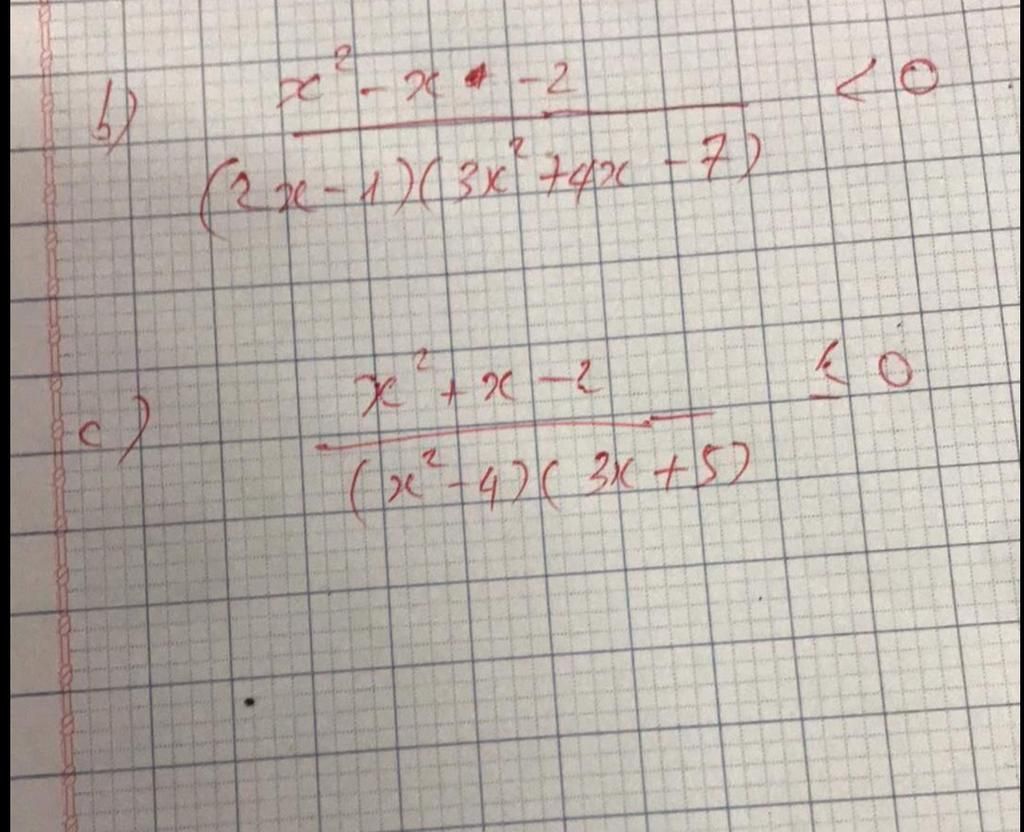 b) x² - x - 2 < 0
(2x - 1)(3x² + 4x - 7)
c) x² + x - 2 ≤ 0
(x² - 4)(3x + 5)